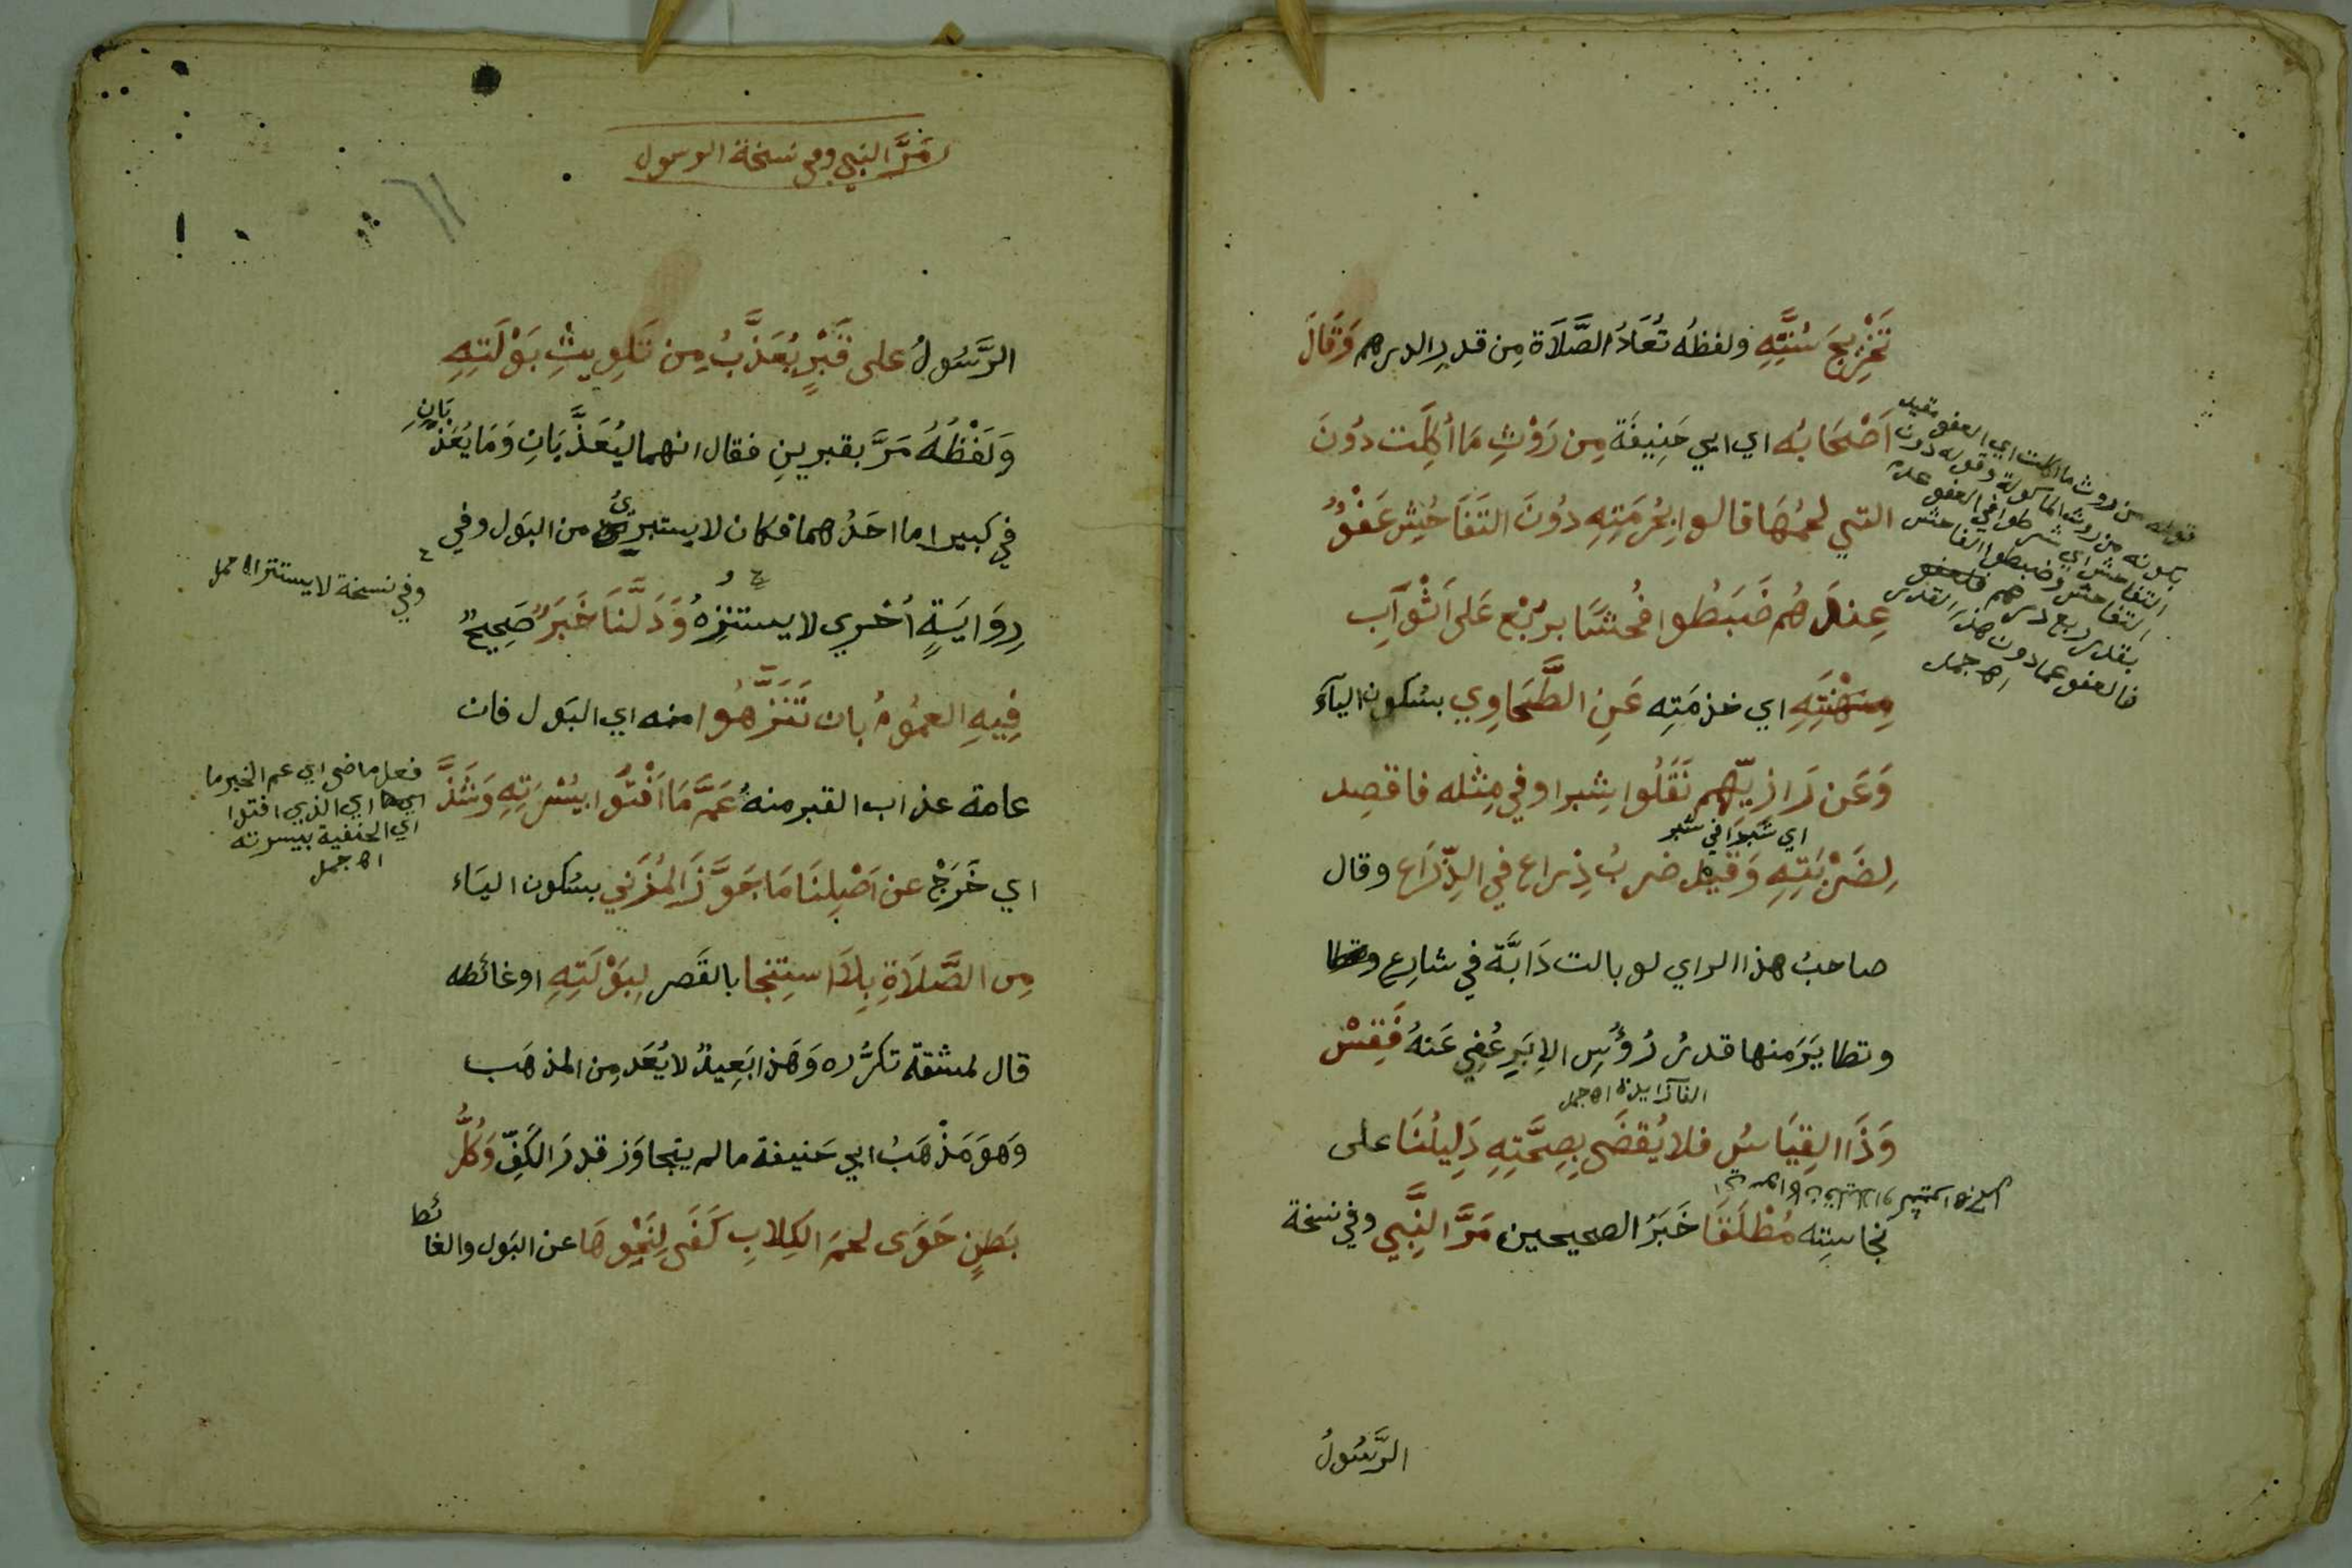 تَخْرِيجَ سُنَّتِهِ ولفظُه تُعَادُ الصَّلَاة مِن قدرِ الدرهم وَقَالَ
اَصْحَابُه اي ابي حَنِيفَة مِن رَوْثِ مَا أُكِلَت دُونَ
التي لحمُهَا قالوا بِحُرمَتِهِ دُونَ التَفَاحُشِ عَفْوٌ
عِندَهُم ضَبَطُوا فُحشًا بربُع عَلى اَثْوَابِ
مِهْنَتِهِ اي خذمَتِه عَنِ الطَّحَاوِي بسُكون اليآء
وَعَن رَازِيِّهِم نَقَلُوا شِبرا وفي مِثله فاقصِد
اي شَبرًا في شبر
لِضَرْبَتِهِ وَقيل ضربُ ذِراع في الذِّرَاع وقال
صاحبُ هذا الراي لو بالت دَابَّة في شارِع
وتطايَرَ منها قدرُ رُؤُسِ الاِبَرِ عُفِي عَنهُ فَقِسْ
الفآ زايدة اه جمل
وَذَا القِيَاسُ فلا يُقضَى بِصِحَّتِهِ دَلِيلُنَا على
نجاسِتِه مُطْلَقًا خَبَرُ الصحيحين مَرَّ النَّبِي وفي نسخة
الرَّسُولُ
قوله من روث ما اكلت اي العفو مقيد
بكونه من روث الماكولة وقوله دون
التفاحش اي شرطوا في العفو عدم
التفاحش وضبطوا الفاحش
بقدر ربع درهم
فالعفو عما دون هذا القدر
اه جمل
مَرَّ النبي وفي نسخة الرسول
الرَّسُولُ على قَبْرٍ يُعَذَّبُ مِن تَلوِيثِ بَوْلَتِهِ
وَلَفْظُهُ مَرَّ بقبرينِ فقال انهما ليُعَذَّبَانِ وَمَا يُعَذَّبَانِ
في كبير اما احَدُهما فكان لا يستبرئُ من البَول وفي
وفي نسخة لا يستتر اه جمل
رِوَايَةٍ اُخرى لا يستنزِهُ وَدَلَّنَا خَبَرٌ صَحِيحٌ
فِيهِ العمُومُ بان تَنَزَّهُوا منه اي البَول فان
عامة عذاب القبر منهُ عَمَّ مَا اَفْتَوا بيُسْرَتِهِ وَشَذَّ
فعل ماضي اي عم الخبر ما
اي الذي افتوا
اي الحنفية بيسرته
اه جمل
اي خَرَجْ عن اَصْلِنَا مَا جَوَّزَ المُزَنِي بسُكون اليَاء
مِن الصَّلَاةِ بِلَا استِنجا بالقَصر لِبَوْلَتِهِ او غائطه
قال لمشقة تكرُّره وَهَذا بَعِيدٌ لا يُعَد مِن المذهَب
وَهوَ مَذْهَبُ ابي حَنيفة ما لم يتجاوَز قدرَ الكَفِّ وَكُلُّ
بَطنٍ حَوَى لحمَ الكِلابِ كَفَى لِنَجْوِهَا عن البَول والغائطِ